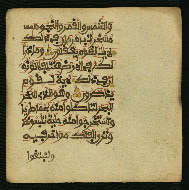 والشمس والقمر والنجوم
مسخرت بامره ان في ذلك
لايت لقوم يعقلون وما ذرا
لكم في الارض مختلفا الونه
ان في ذلك لاية لقوم
يذكرون وهو الذي سخر
البحر لتاكلوا منه لحما طريا
وتستخرجوا منه حلية تلبسونها
وترى الفلك مواخر فيه
ولتبتغوا